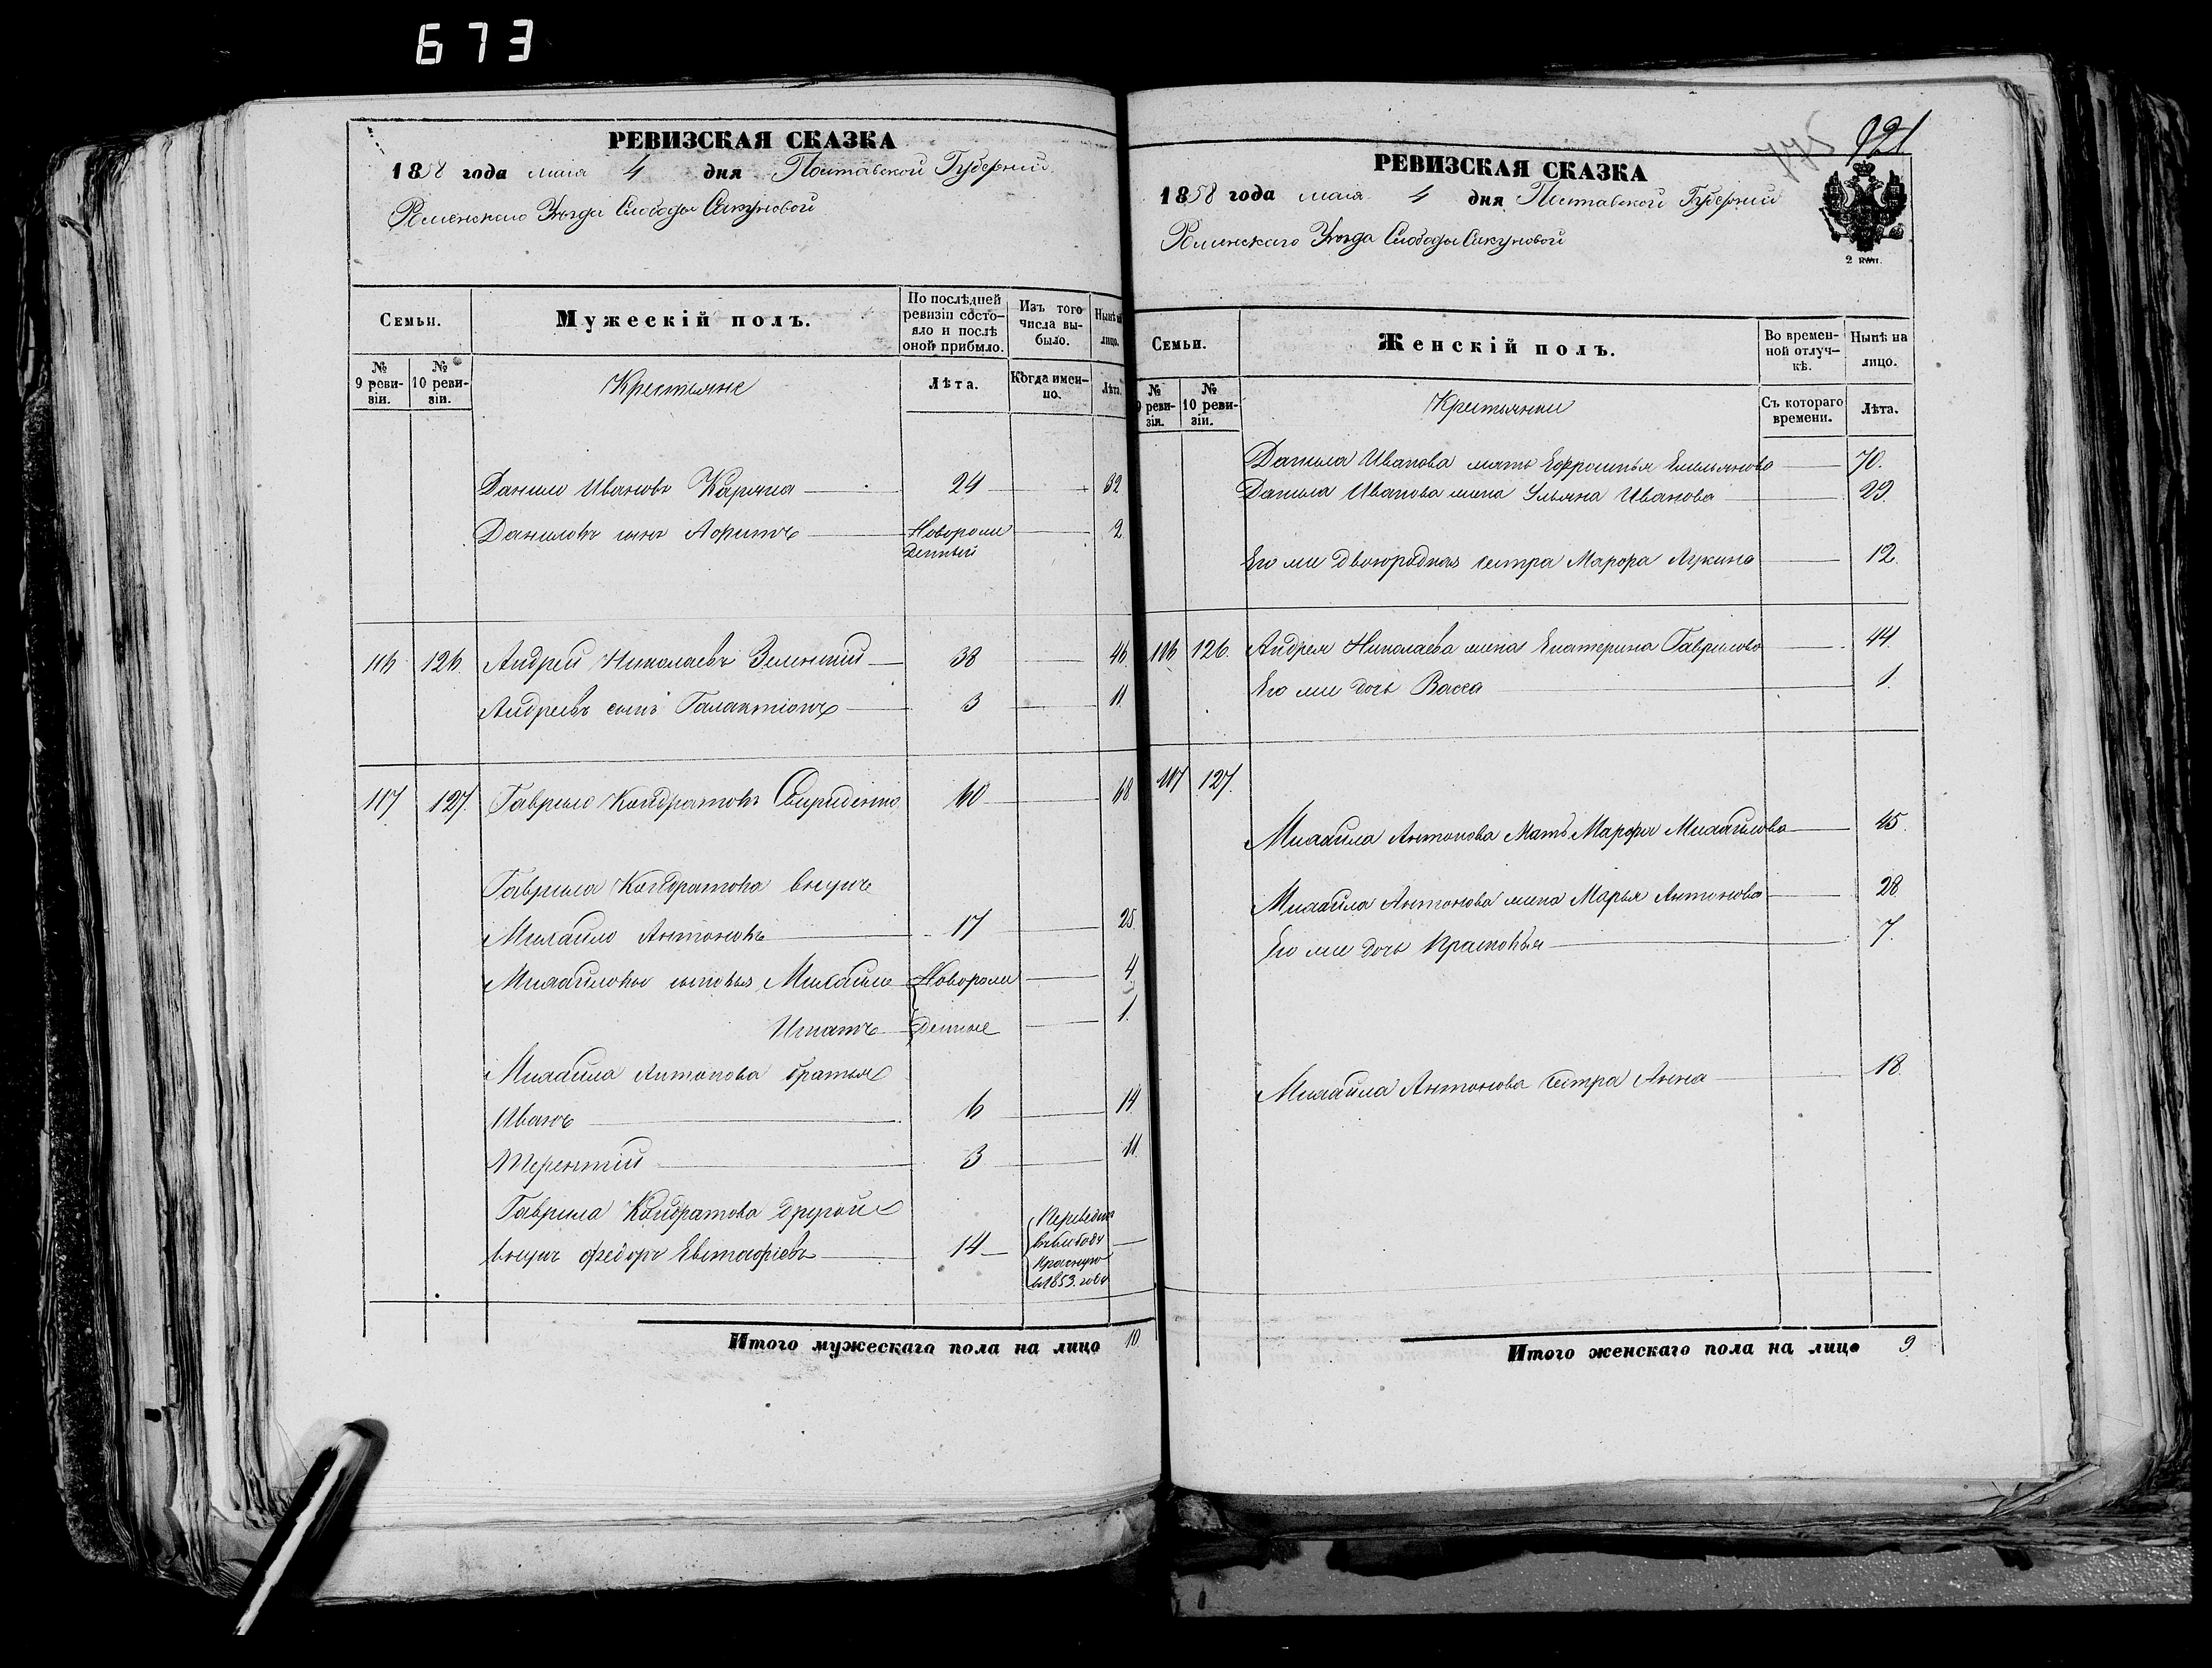 673
РЕВИЗСКАЯ СКАЗКА
1858 года мая 4 дня Полтавской Губернии
Роменскаго Уѣзда Слободы Сакуновой
Семьи.
Мужескій полъ.
По послѣдней ревизіи состояло и послѣ оной прибыло.
Изъ того числа выбыло.
Нынѣ на лицо.
№ 9 ревизіи.
№ 10 ревизіи.
Крестьяне
Лѣта.
Когда именно.
Лѣта.
Данило Ивановъ Каряка 24 32
Даниловъ сынъ Новорожденный 2
116 126. Андрей Николаевъ Зеленскій 38 46
Андреевъ сынъ Галактіонъ 3 11
117 127. Гаврило Кондратовъ Свириденко 60 68
Гаврила Кондратова внукъ
Михайло Антоновъ 17 25
Михайловы сыновья Михайло Новорож 4
Игнатъ денные 1.
Михайла Антонова братья
Иванъ 6 14
Терентій 3 11.
Гаврила Кондратова другой
внукъ Федоръ Евстафіевъ 14
Переведенъ
въ слободу
Красную
въ 1853. году
Итого мужескаго пола на лицо 10
775 921
РЕВИЗСКАЯ СКАЗКА
1858 года мая 4 дня Полтавской Губернии
Роменскаго Уѣзда Слободы Сакуновой
2 коп.
Семьи.
Женскій полъ.
Во временной отлучкѣ.
Нынѣ на лицо.
№ 9 ревизіи.
№ 10 ревизіи.
Крестьянки
Съ котораго времени.
Лѣта.
Данила Иванова мать Ефросинья Емельянова 70.
Данила Иванова жена Ульяна Иванова 29.
Его же двоюродная сестра Лукина 12.
116 126. Андрея Николаева жена Екатерина Гаврилова 44.
Его же дочь Васса 1.
117 127.
Михайла Антонова Мать Марфа Михайлова 45.
Михайла Антонова жена Марья Антонова 28.
Его же дочь Прасковья 7.
Михайла Антонова сестра Анна 18.
Итого женскаго пола на лицо 9